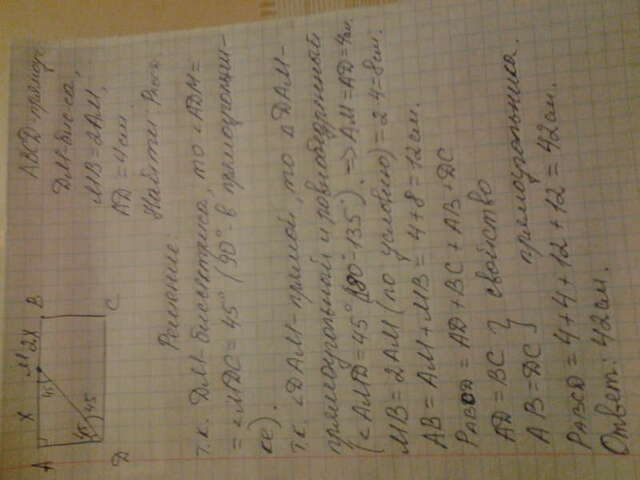 A X M 2X B
45
45 45
D C
ABCD прямоуг
DM-бис-са,
MB=2AM,
AD=4см.
Найти
Решение:
т.к. DM-биссектриса, то <ADM=
=<MDC=45° (90°-в прямоугольни-
ке).
т.к. <DAM-прямой, то △DAM-
прямоугольный и равнобедренный
(<AMD=45° (180°-135°). => AM=AD=4см.
MB=2AM (по условию)=2·4=8см.
AB=AM+MB=4+8=12см.
PABCD=AD+BC+AB+DC
AD=BC } свойство
AB=DC } прямоугольника.
PABCD=4+4+12+12=42см.
Ответ: 42см.